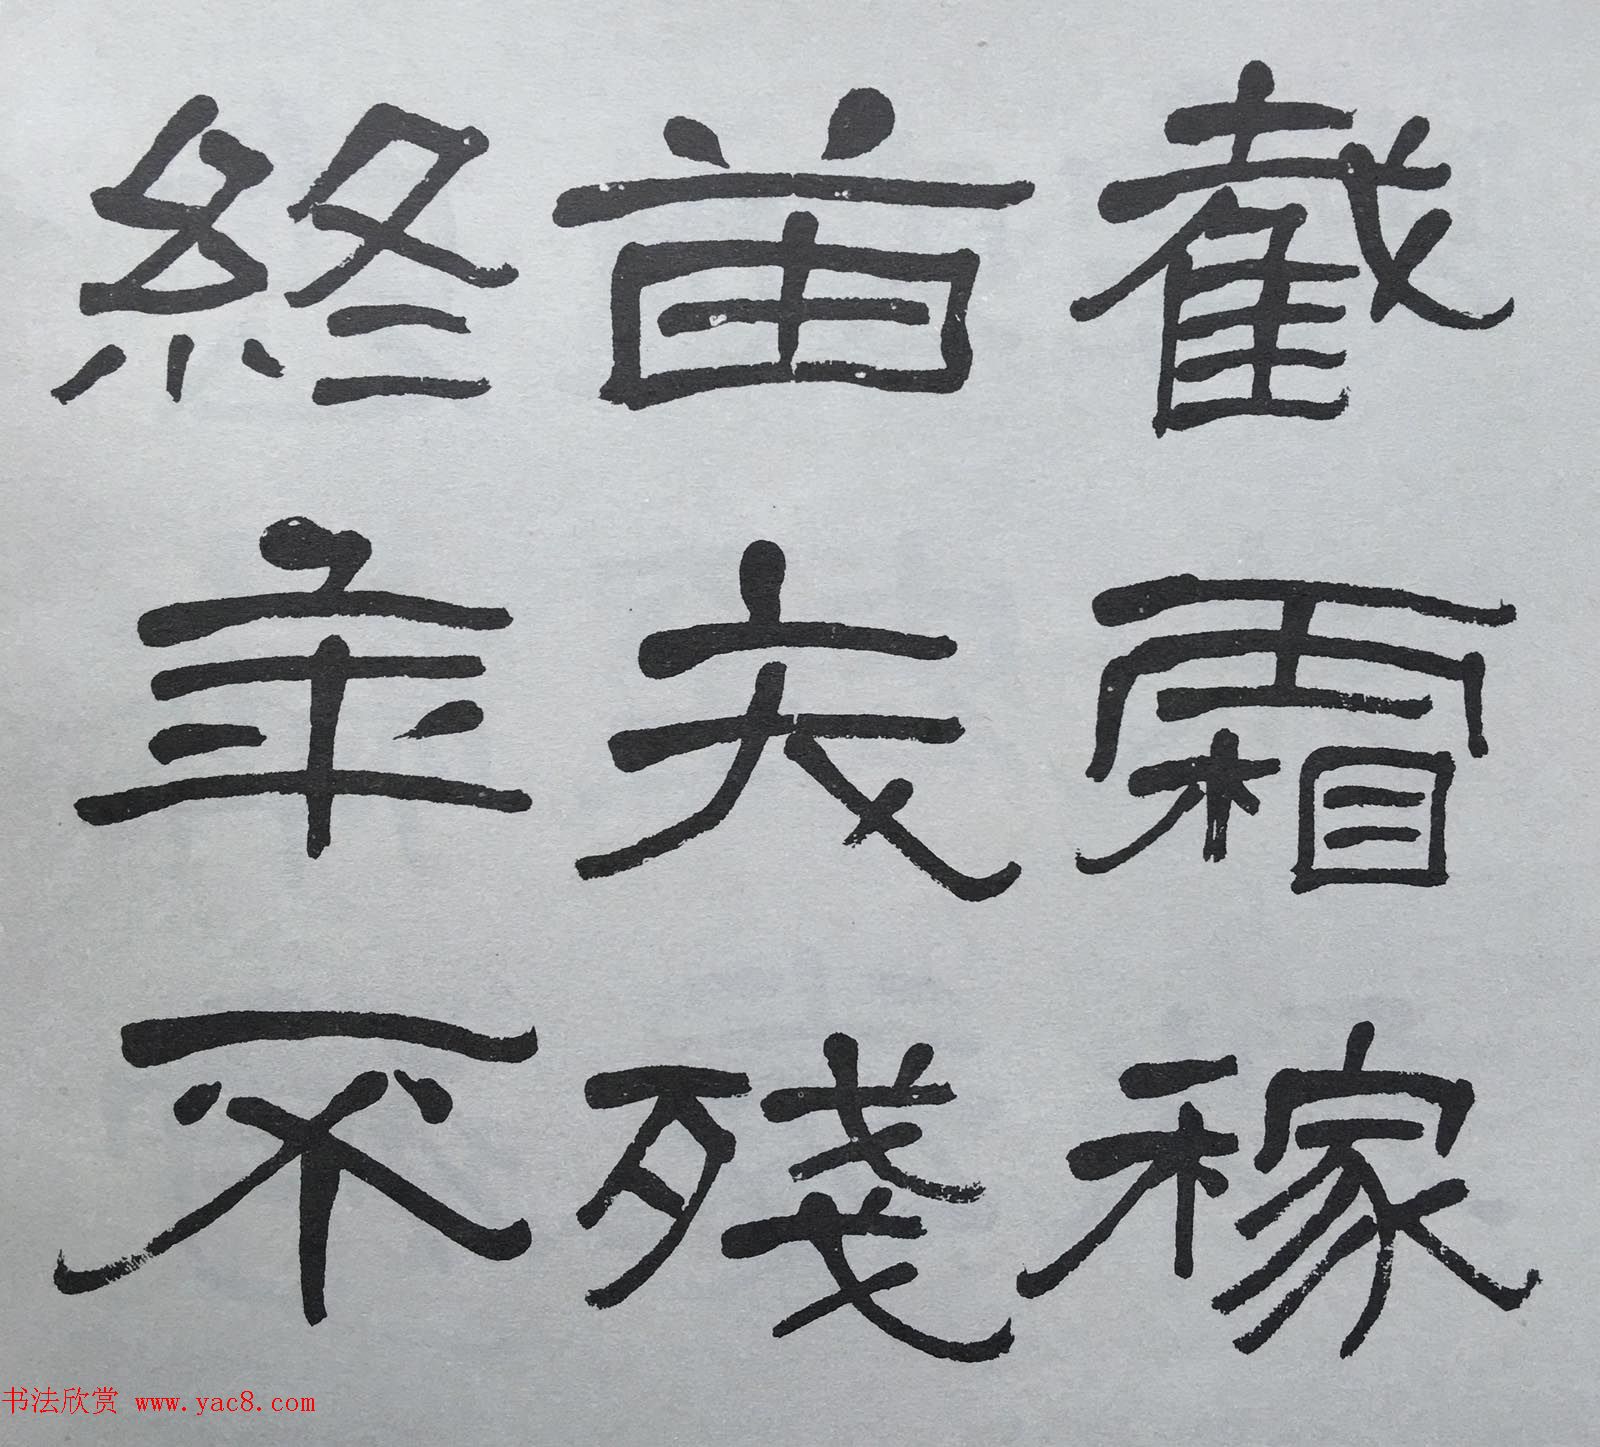 截霜稼
苗殘
終年不
书法欣赏 www.yac8.com